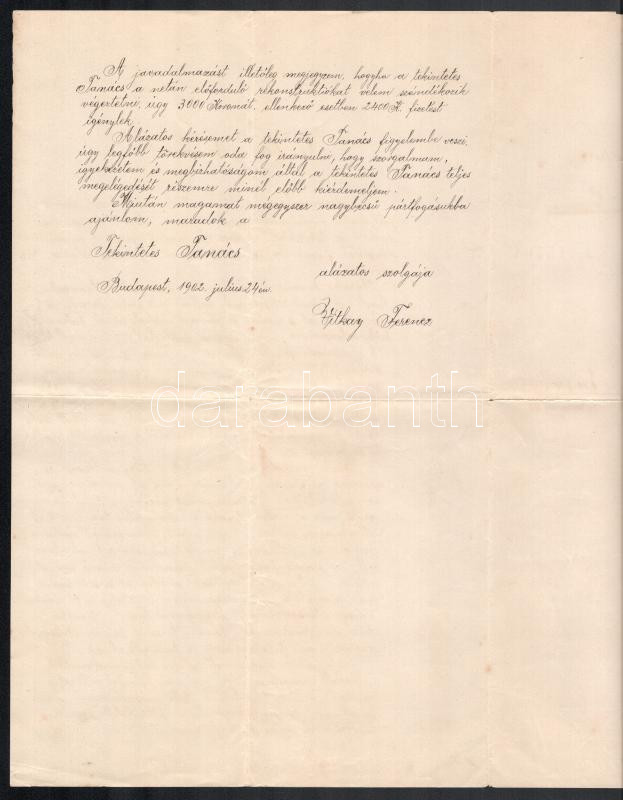 A javadalmazást illetőleg megjegyzem, hogyha a tekintetes
Tanács a netán előforduló rekonstrukciókat velem szándékozik
végeztetni, úgy 3000 Koronát, ellenkező esetben 2400 K. fizetést
igénylek.
Alázatos kérésemet a tekintetes Tanács figyelembe veszi,
úgy legfőbb törekvésem oda fog irányulni, hogy szorgalmam,
igyekezetem és megbizhatóságom által a tekintetes Tanács teljes
megelégedését részemre minél előbb kiérdemeljem.
Miután magamat mégegyszer nagybecsű pártfogásukba
ajánlom, maradok a
Tekintetes Tanács
alázatos szolgája
Budapest, 1902. július 24én.
Ferencz
darabanth